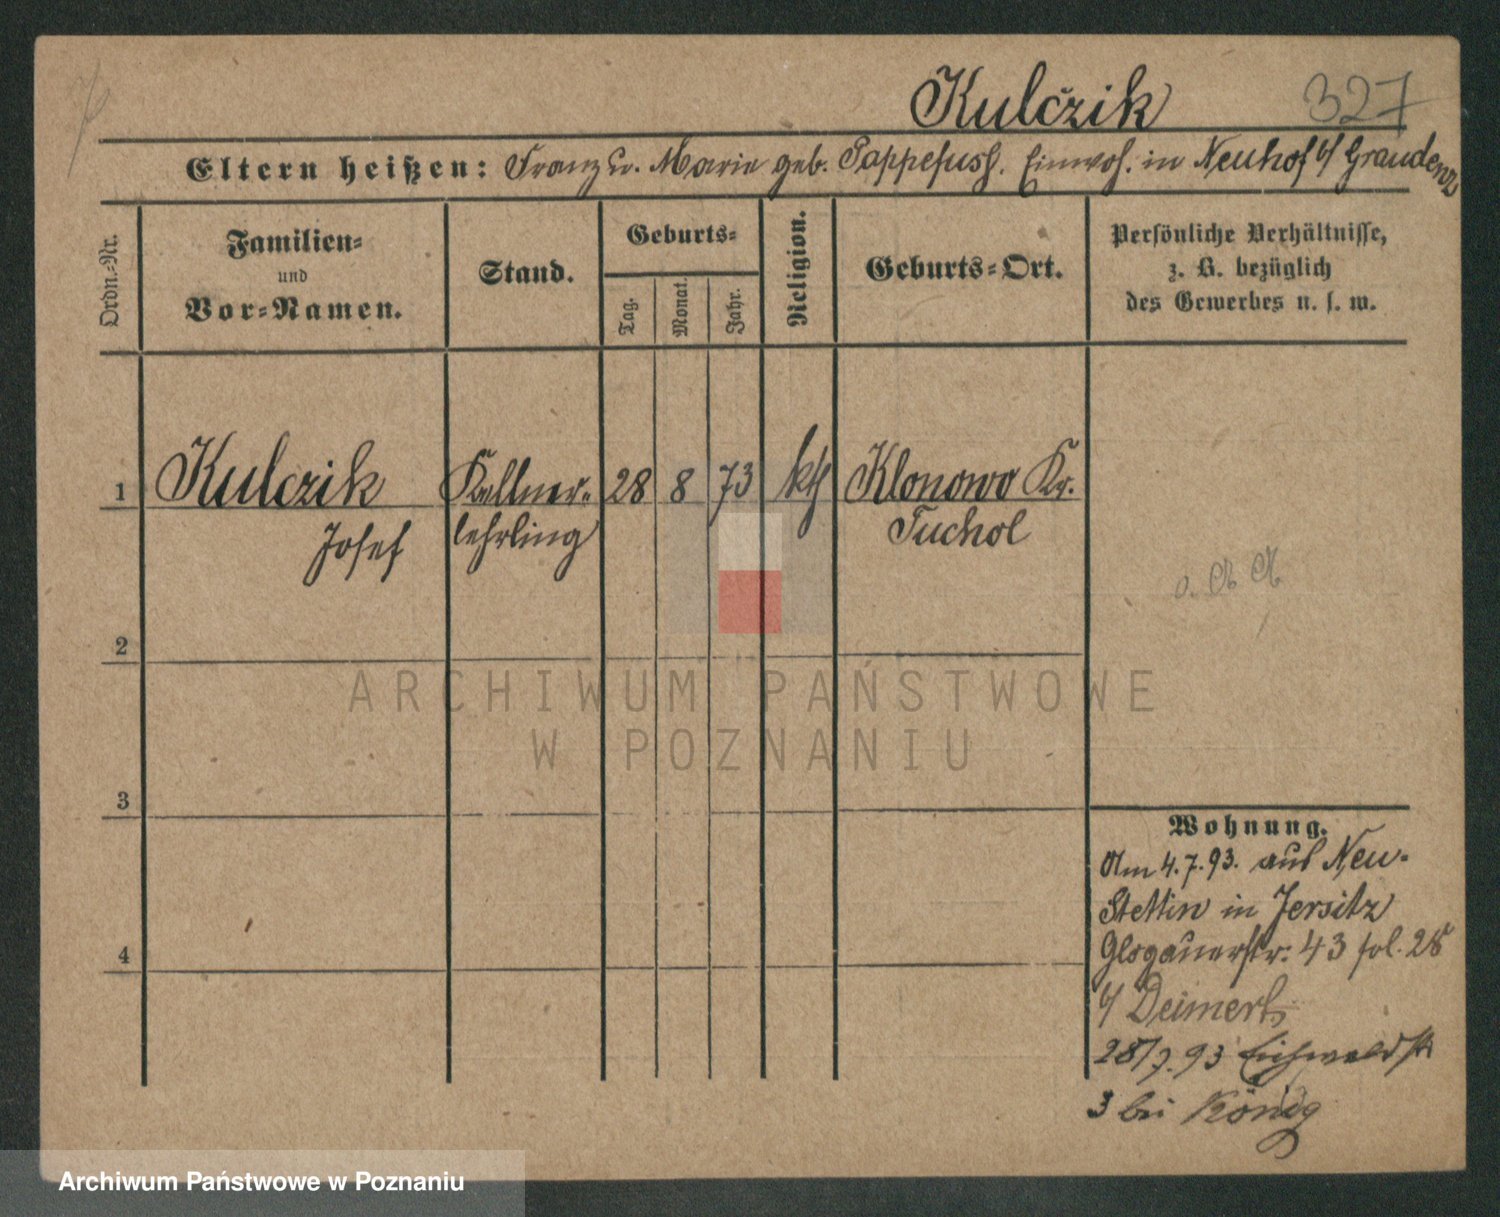 Kulčzik 327
Eltern heißen: Franz u. Marie geb. Pappefuss. Einwoh. in Neuhof b/ Graudenz
Ordn.-Nr.
Familien-
und
Vor-Namen.
Stand.
Geburts-
Tag.
Monat.
Jahr.
Religion.
Geburts-Ort.
Persönliche Verhältnisse,
z. B. bezüglich
des Gewerbes u. s. w.
1 Kulczik Kellner- 28 8 73 kth Klonowo Kr.
Josef lehrling Tuchol
2
3
4
Wohnung.
Am 4.7.93. aus Neu-
Stettin in Jersitz
Glogauerstr. 43 fol. 28
b/ Deimert
28/7.93 Eichwaldstr
3 bei König
ARCHIWUM PAŃSTWOWE
W POZNANIU
Archiwum Państwowe w Poznaniu